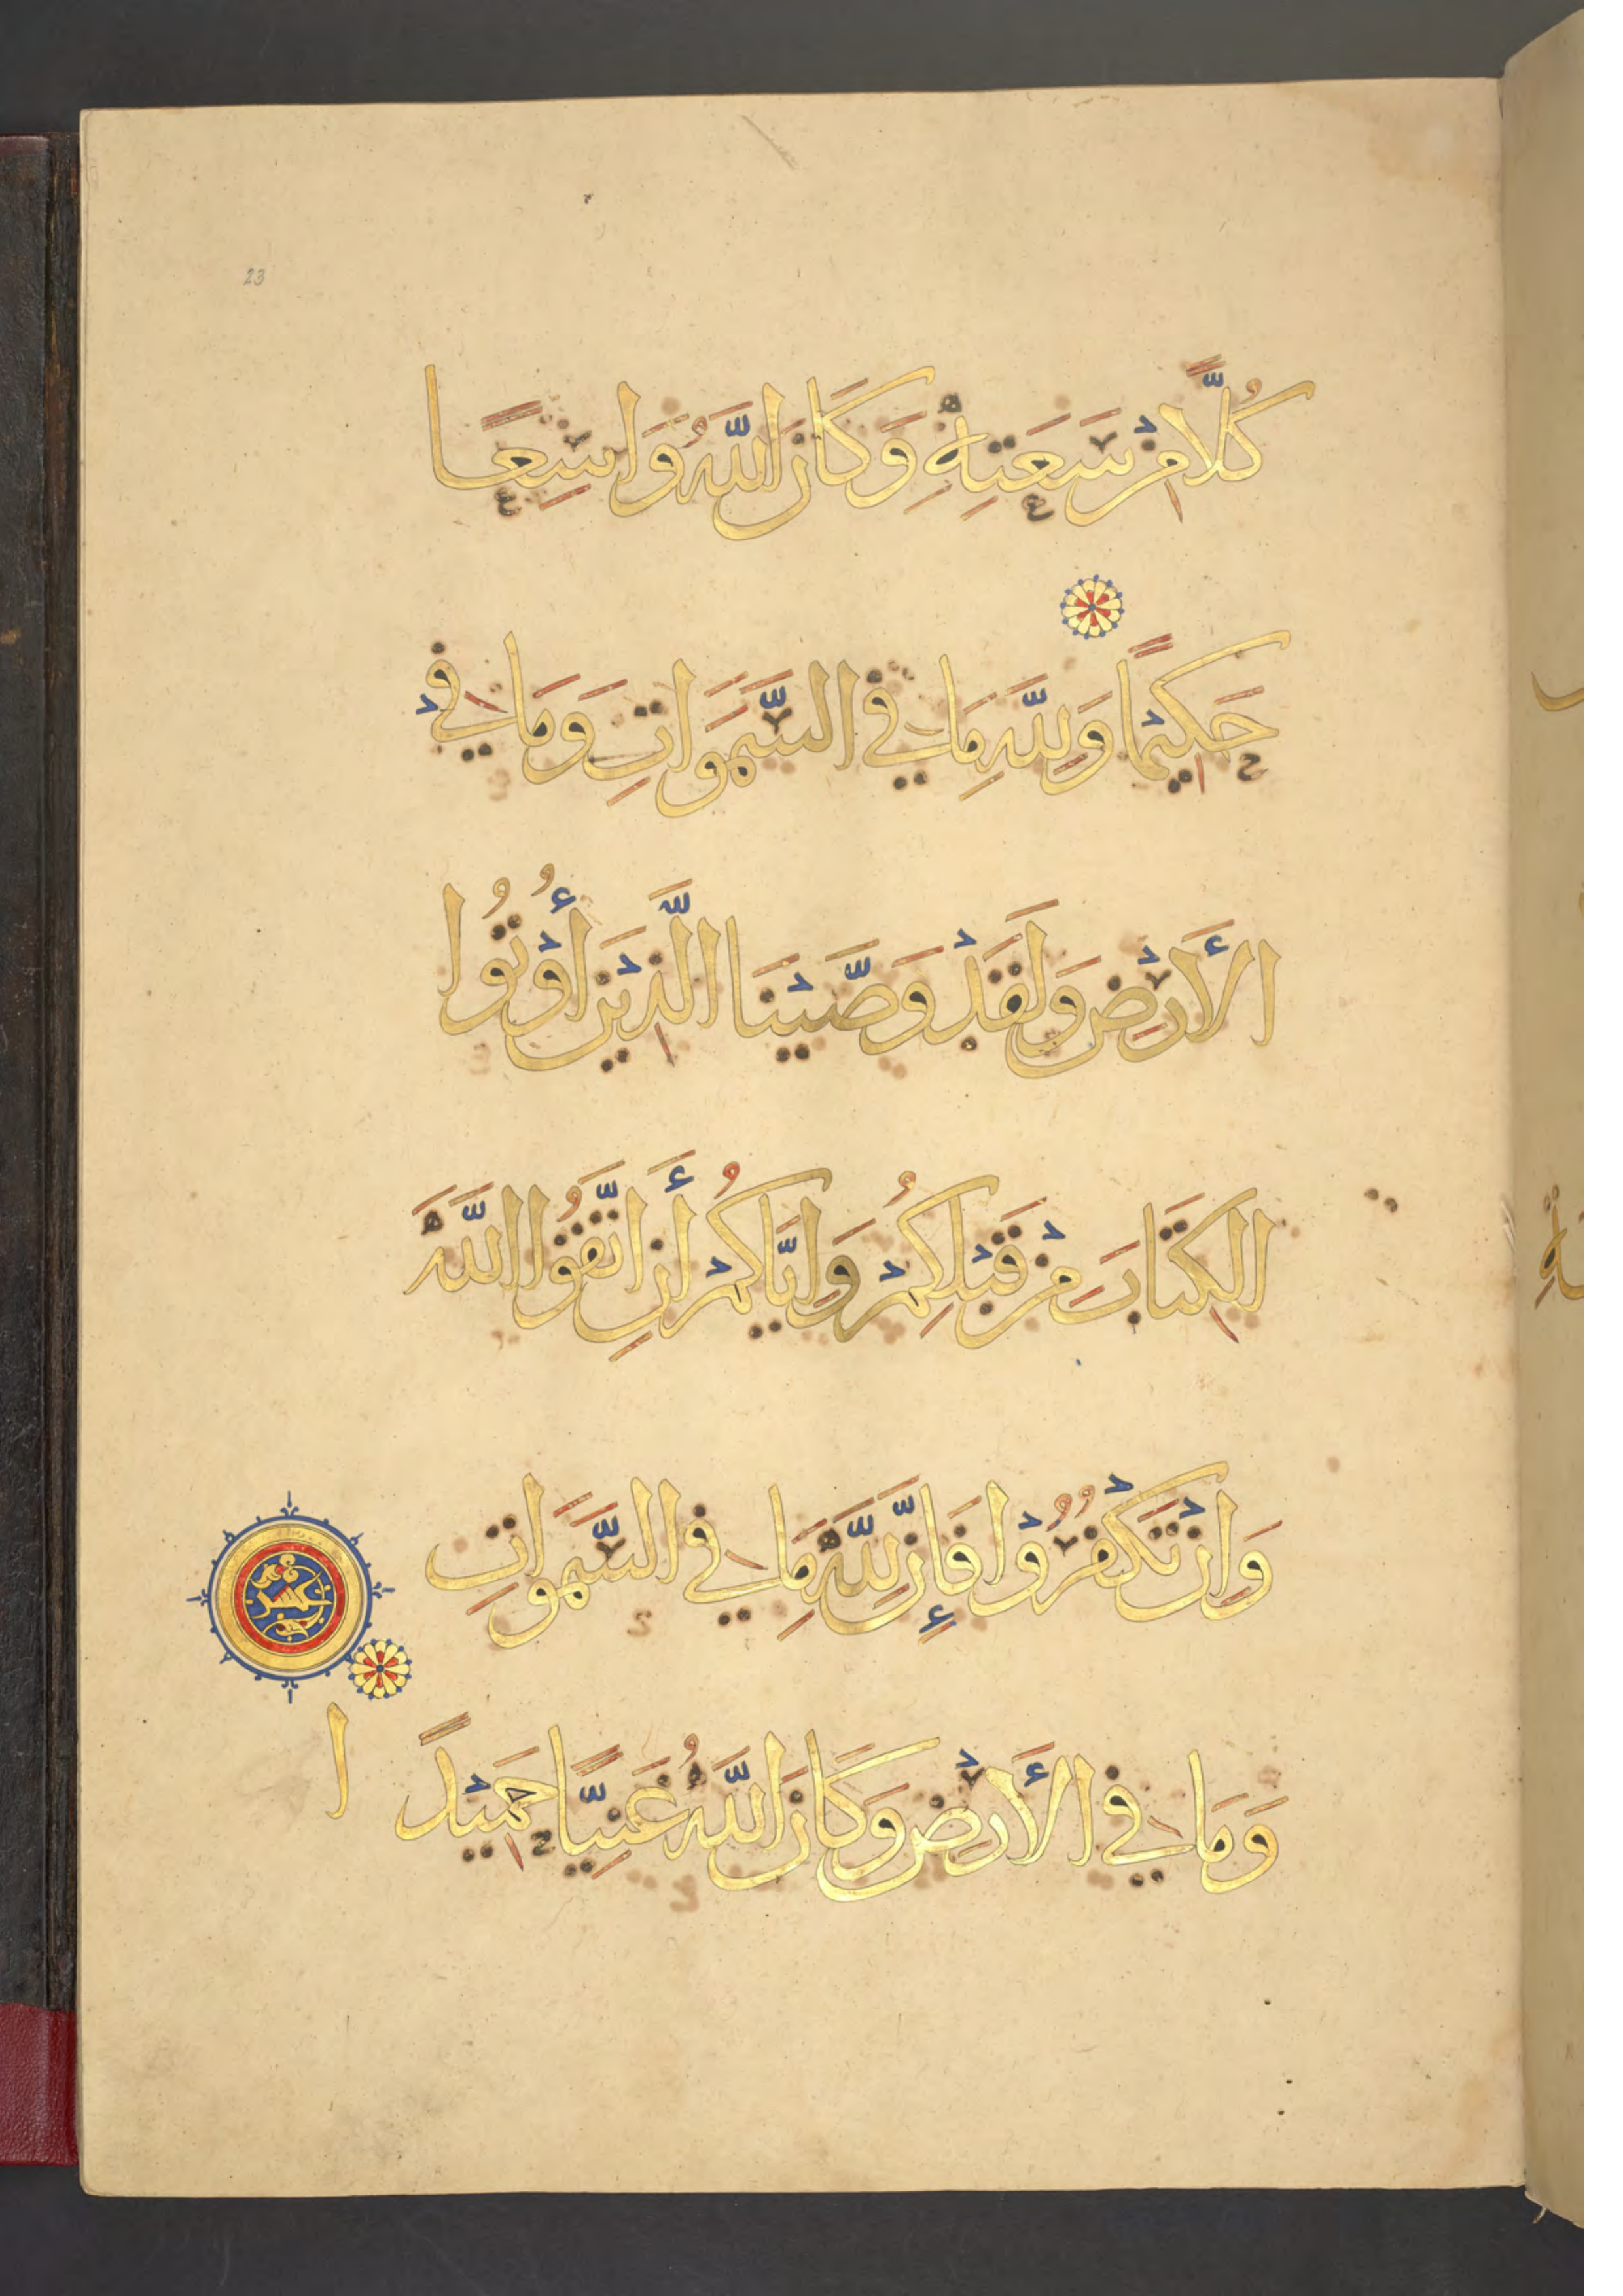 23
كُلًّا مِنْ سَعَتِهِ وَكَانَ اللَّهُ وَاسِعًا
حَكِيْمًا وَلِلَّهِ مَا فِي السَّمَوَاتِ وَمَا فِي
الْأَرْضِ وَلَقَدْ وَصَّيْنَا الَّذِيْنَ أُوْتُوا
الْكِتَابَ مِنْ قَبْلِكُمْ وَإِيَّاكُمْ أَنِ اتَّقُوا اللَّهَ
وَإِنْ تَكْفُرُوْا فَإِنَّ لِلَّهِ مَا فِي السَّمَوَاتِ
وَمَا فِي الْأَرْضِ وَكَانَ اللَّهُ غَنِيًّا حَمِيْدًا